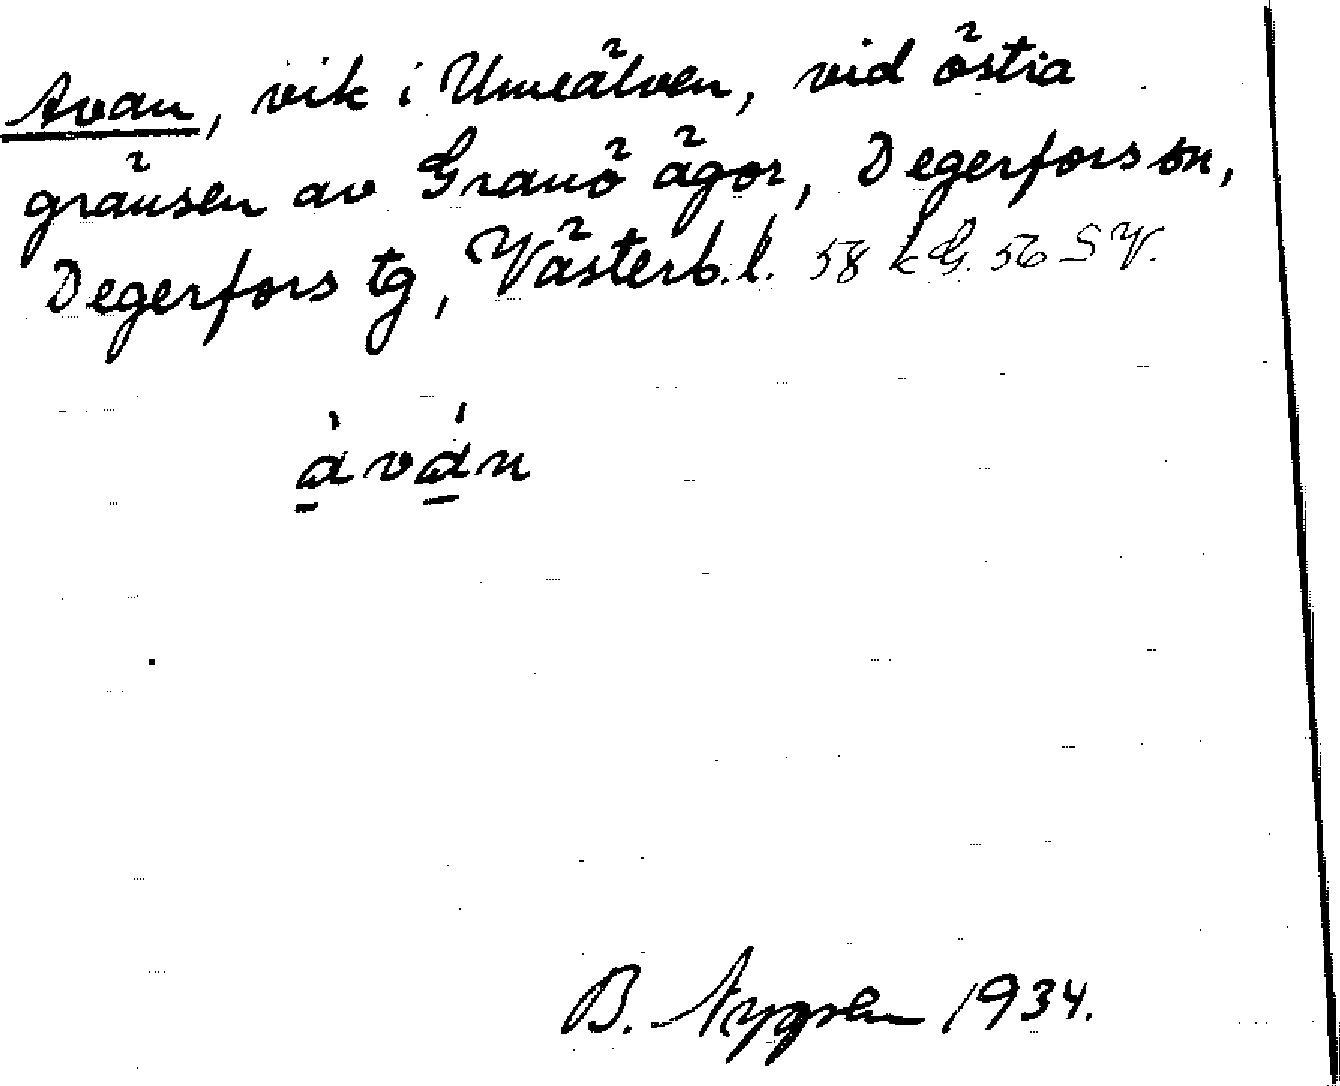 Avan, vik i Umeälven, vid östra
gränsen av Granö ägor, Degerfors sn,
Degerfors tg, Västerb. l. 58 k G. 56 S V.
a̱̓va̱̓n
B. Nygren 1934.